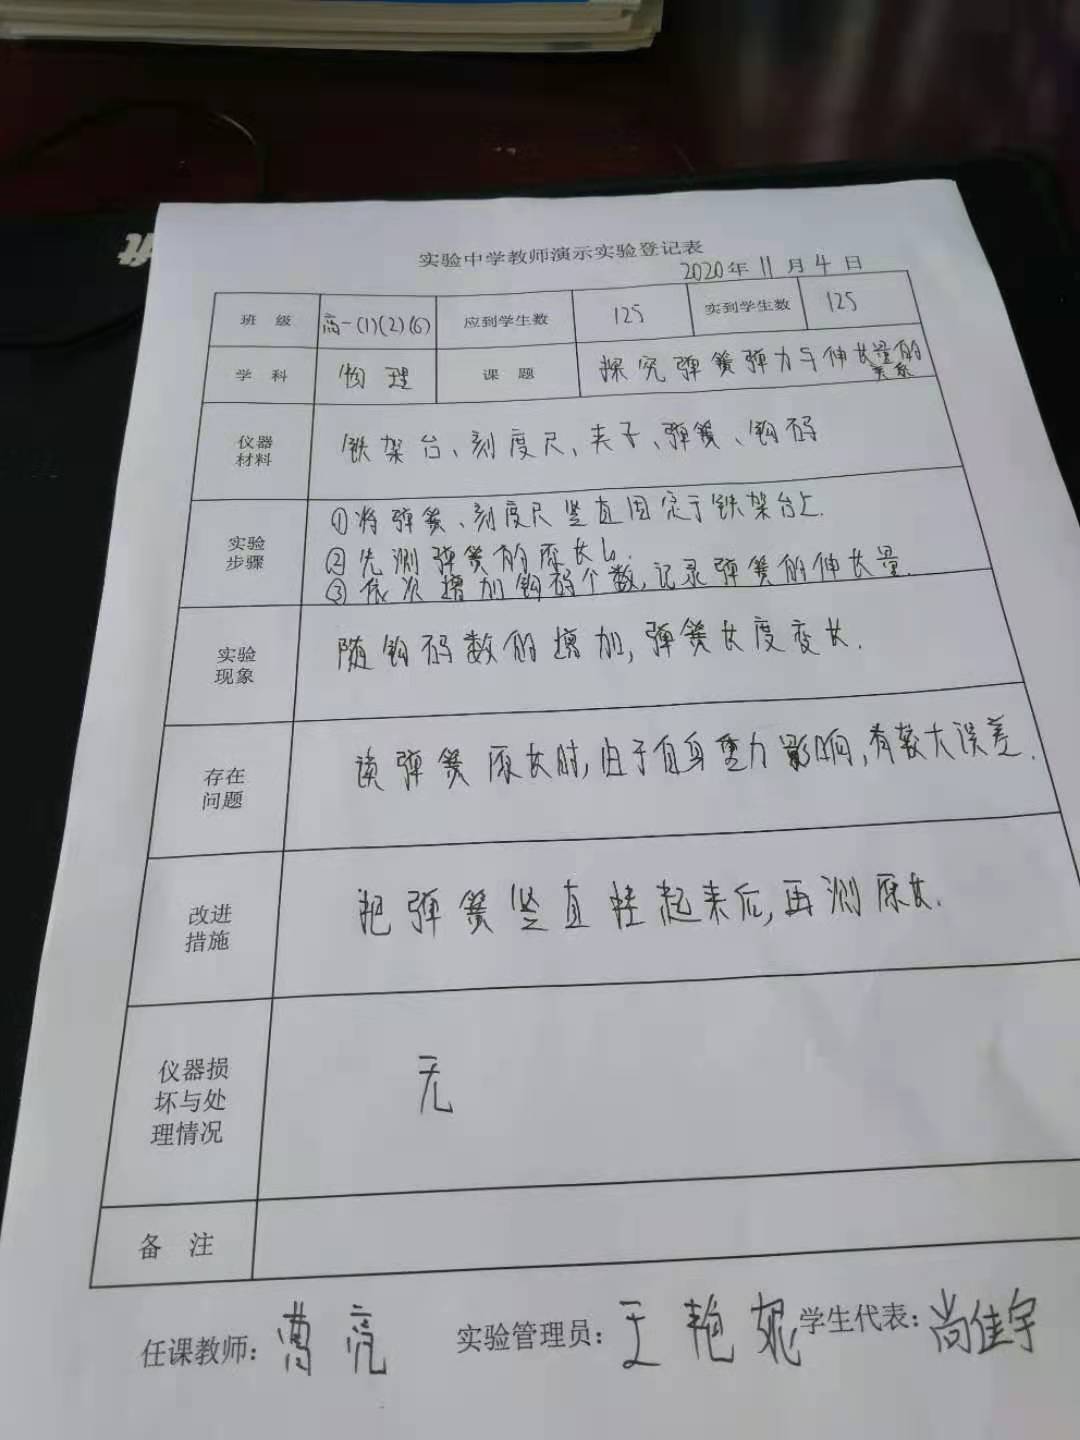 ft
实验中学教师演示实验登记表
2020年 11 月 4 日
班 级 高一(1)(2)(6) 应到学生数 125 实到学生数 125
学 科 物理 课 题 探究弹簧弹力与伸长量的
关系
仪器
材料
铁架台、刻度尺、夹子、弹簧、钩码
实验
步骤
①将弹簧、刻度尺竖直固定于铁架台上.
②先测弹簧的原长l₀.
③依次增加钩码个数,记录弹簧的伸长量.
实验
现象
随钩码数的增加,弹簧长度变长.
存在
问题
读弹簧原长时,由于自身重力影响,有较大误差.
改进
措施
把弹簧竖直挂起来后,再测原长.
仪器损
坏与处
理情况
无
备 注
任课教师: 曹亮 实验管理员: 王艳妮 学生代表: 尚佳宇